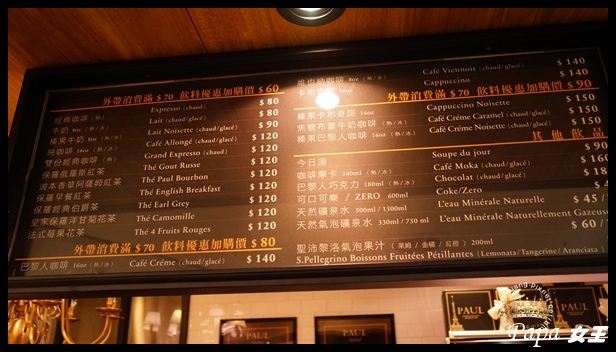 外帶消費滿 $70 飲料優惠加購價 $60
經典咖啡 (熱) Espresso (chaud) $ 80
牛奶 8oz (熱/冰) Lait (chaud/glacé) $ 80
榛果牛奶 8oz (熱/冰) Lait Noisette (chaud/glacé) $ 90
純咖啡 16oz (熱/冰) Café Allongé (chaud/glacé) $ 120
雙份經典咖啡 (熱) Grand Espresso (chaud) $ 120
保羅俄羅斯紅茶 Thé Gout Russe $ 120
波本香草阿薩姆紅茶 Thé Paul Bourbon $ 120
保羅早餐紅茶 Thé English Breakfast $ 120
保羅經典伯爵茶 Thé Earl Grey $ 120
皇家保羅洋甘菊花茶 Thé Camomille $ 120
法式莓果花茶 Thé 4 Fruits Rouges $ 120
外帶消費滿 $70 飲料優惠加購價 $ 80
巴黎人咖啡 16oz (熱/冰) Café Créme (chaud/glacé) $ 140
維也納咖啡 8oz (熱/冰) Café Viennois (chaud/glacé) $ 140
卡布奇諾 Cappucino $ 140
外帶消費滿 $70 飲料優惠加購價 $ 90
榛果卡布奇諾 16oz Cappucino Noisette $ 150
焦糖布蕾牛奶咖啡 16oz (熱/冰) Café Créme Caramel (chaud/glacé) $ 150
榛果巴黎人咖啡 16oz (熱/冰) Café Créme Noisette (chaud/glacé) $ 150
其他飲品
今日湯 Soupe du jour $ 90
咖啡摩卡 240ml (熱/冰) Café Moka (chaud/glacé) $ 160
巴黎人巧克力 180ml (熱/冰) Chocolat (chaud/glacé) $ 180
可口可樂 / ZERO 600ml Coke/Zero
天然礦泉水 500ml / 1500ml L'eau Minérale Naturelle $ 45
天然氣泡礦泉水 330ml / 750 ml L'eau Minérale Naturellement Gazeuse $ 60
聖沛黎洛氣泡果汁 (萊姆 / 金橘 / 紅橙) 200ml
S.Pellegrino Boissons Fruitées Pétillantes (Lemonata/Tangerine/Aranciata
PAUL
PAUL
PAUL
Papa 女王